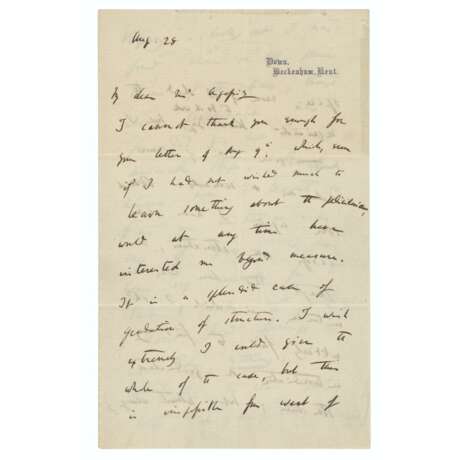 Aug. 28
Down,
Beckenham, Kent.
My dear Mr Agassiz
I cannot thank you enough for
your letter of Aug 9th. which, even
if I had not wished much to
learn something about the pedicellariæ,
would at any time have
interested me beyond measure.
It is a splendid case of
gradation of structure. I wish
extremely I could give the
whole of the case, but this
is impossible from want of